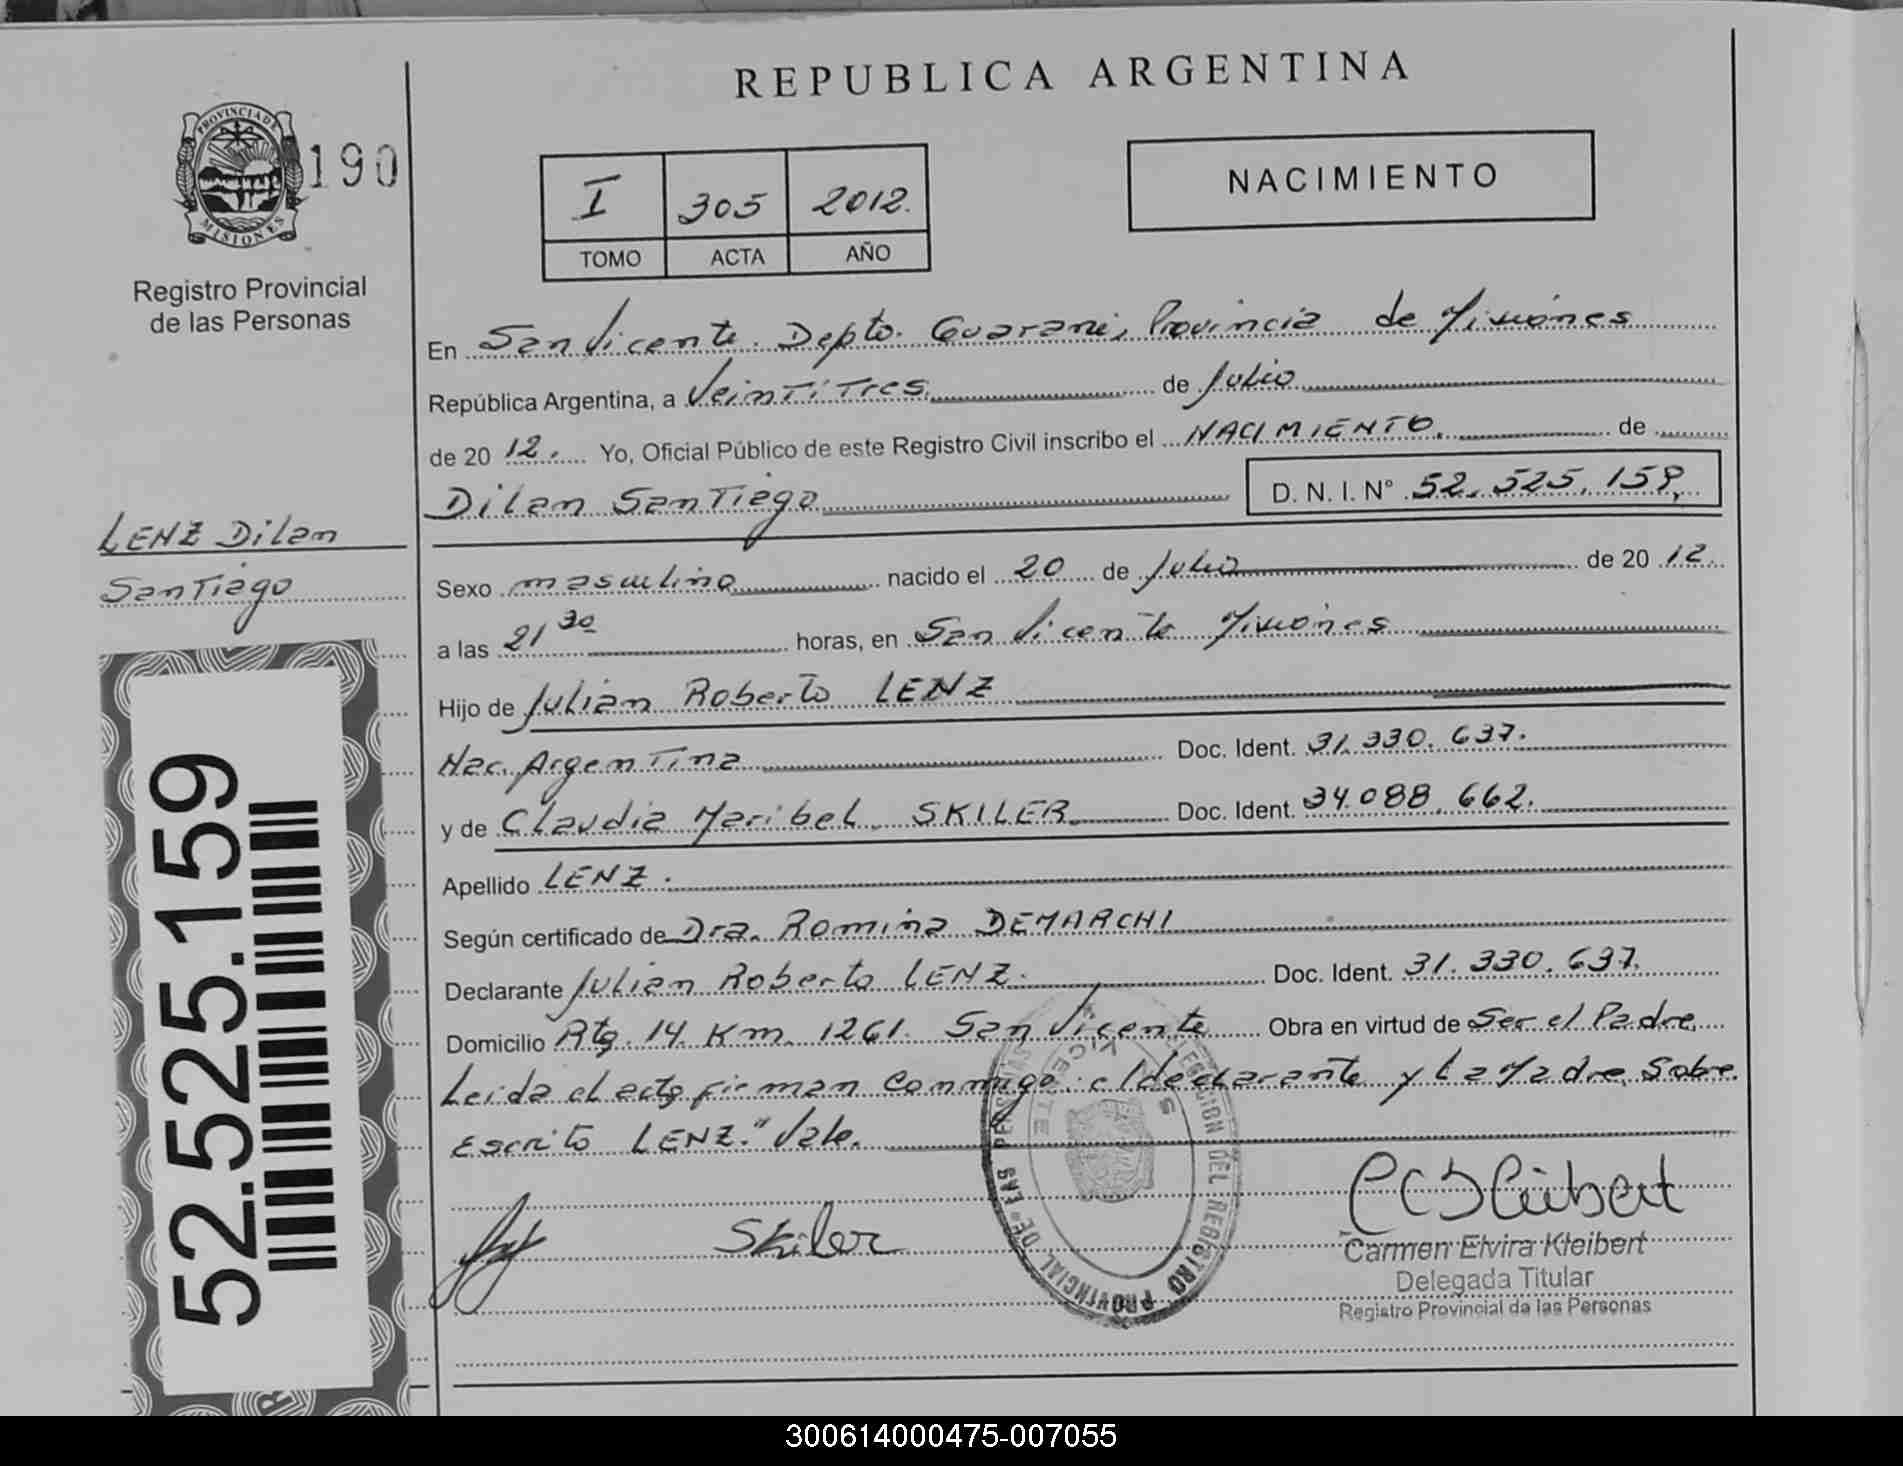 REPUBLICA ARGENTINA
PROVINCIA DE
MISIONES
190
I 305 2012.
TOMO ACTA AÑO
NACIMIENTO
Registro Provincial
de las Personas
En San Vicente. Depto. Guarani, Provincia de Misiones
República Argentina, a Veintitres de Julio
de 20 12. Yo, Oficial Público de este Registro Civil inscribo el NACIMIENTO. de
Dilan Santiago D. N. I. N° 52.525.159,
LENZ Dilan
Santiago
Sexo masculino nacido el 20 de Julio de 20 12
a las 21 30 horas, en San Vicente Misiones
Hijo de Julian Roberto LENZ
Nac. Argentina Doc. Ident. 31.330.637.
y de Claudia Maribel SKILER Doc. Ident. 34.088.662.
Apellido LENZ.
Según certificado de Dra. Romina DEMARCHI
Declarante Julian Roberto LENZ. Doc. Ident. 31.330.637.
Domicilio Rta. 14. Km. 1261. San Vicente Obra en virtud de Ser el Padre
Leida el acta firman conmigo el declarante y La Madre. Sobre
Escrito LENZ." Vale.
52.525.159
DELEGACION DEL REGISTRO PROVINCIAL DE LAS PERSONAS
VICENTE
Skiler
CCSKleibert
Carmen Elvira Kleibert
Delegada Titular
Registro Provincial de las Personas
300614000475-007055